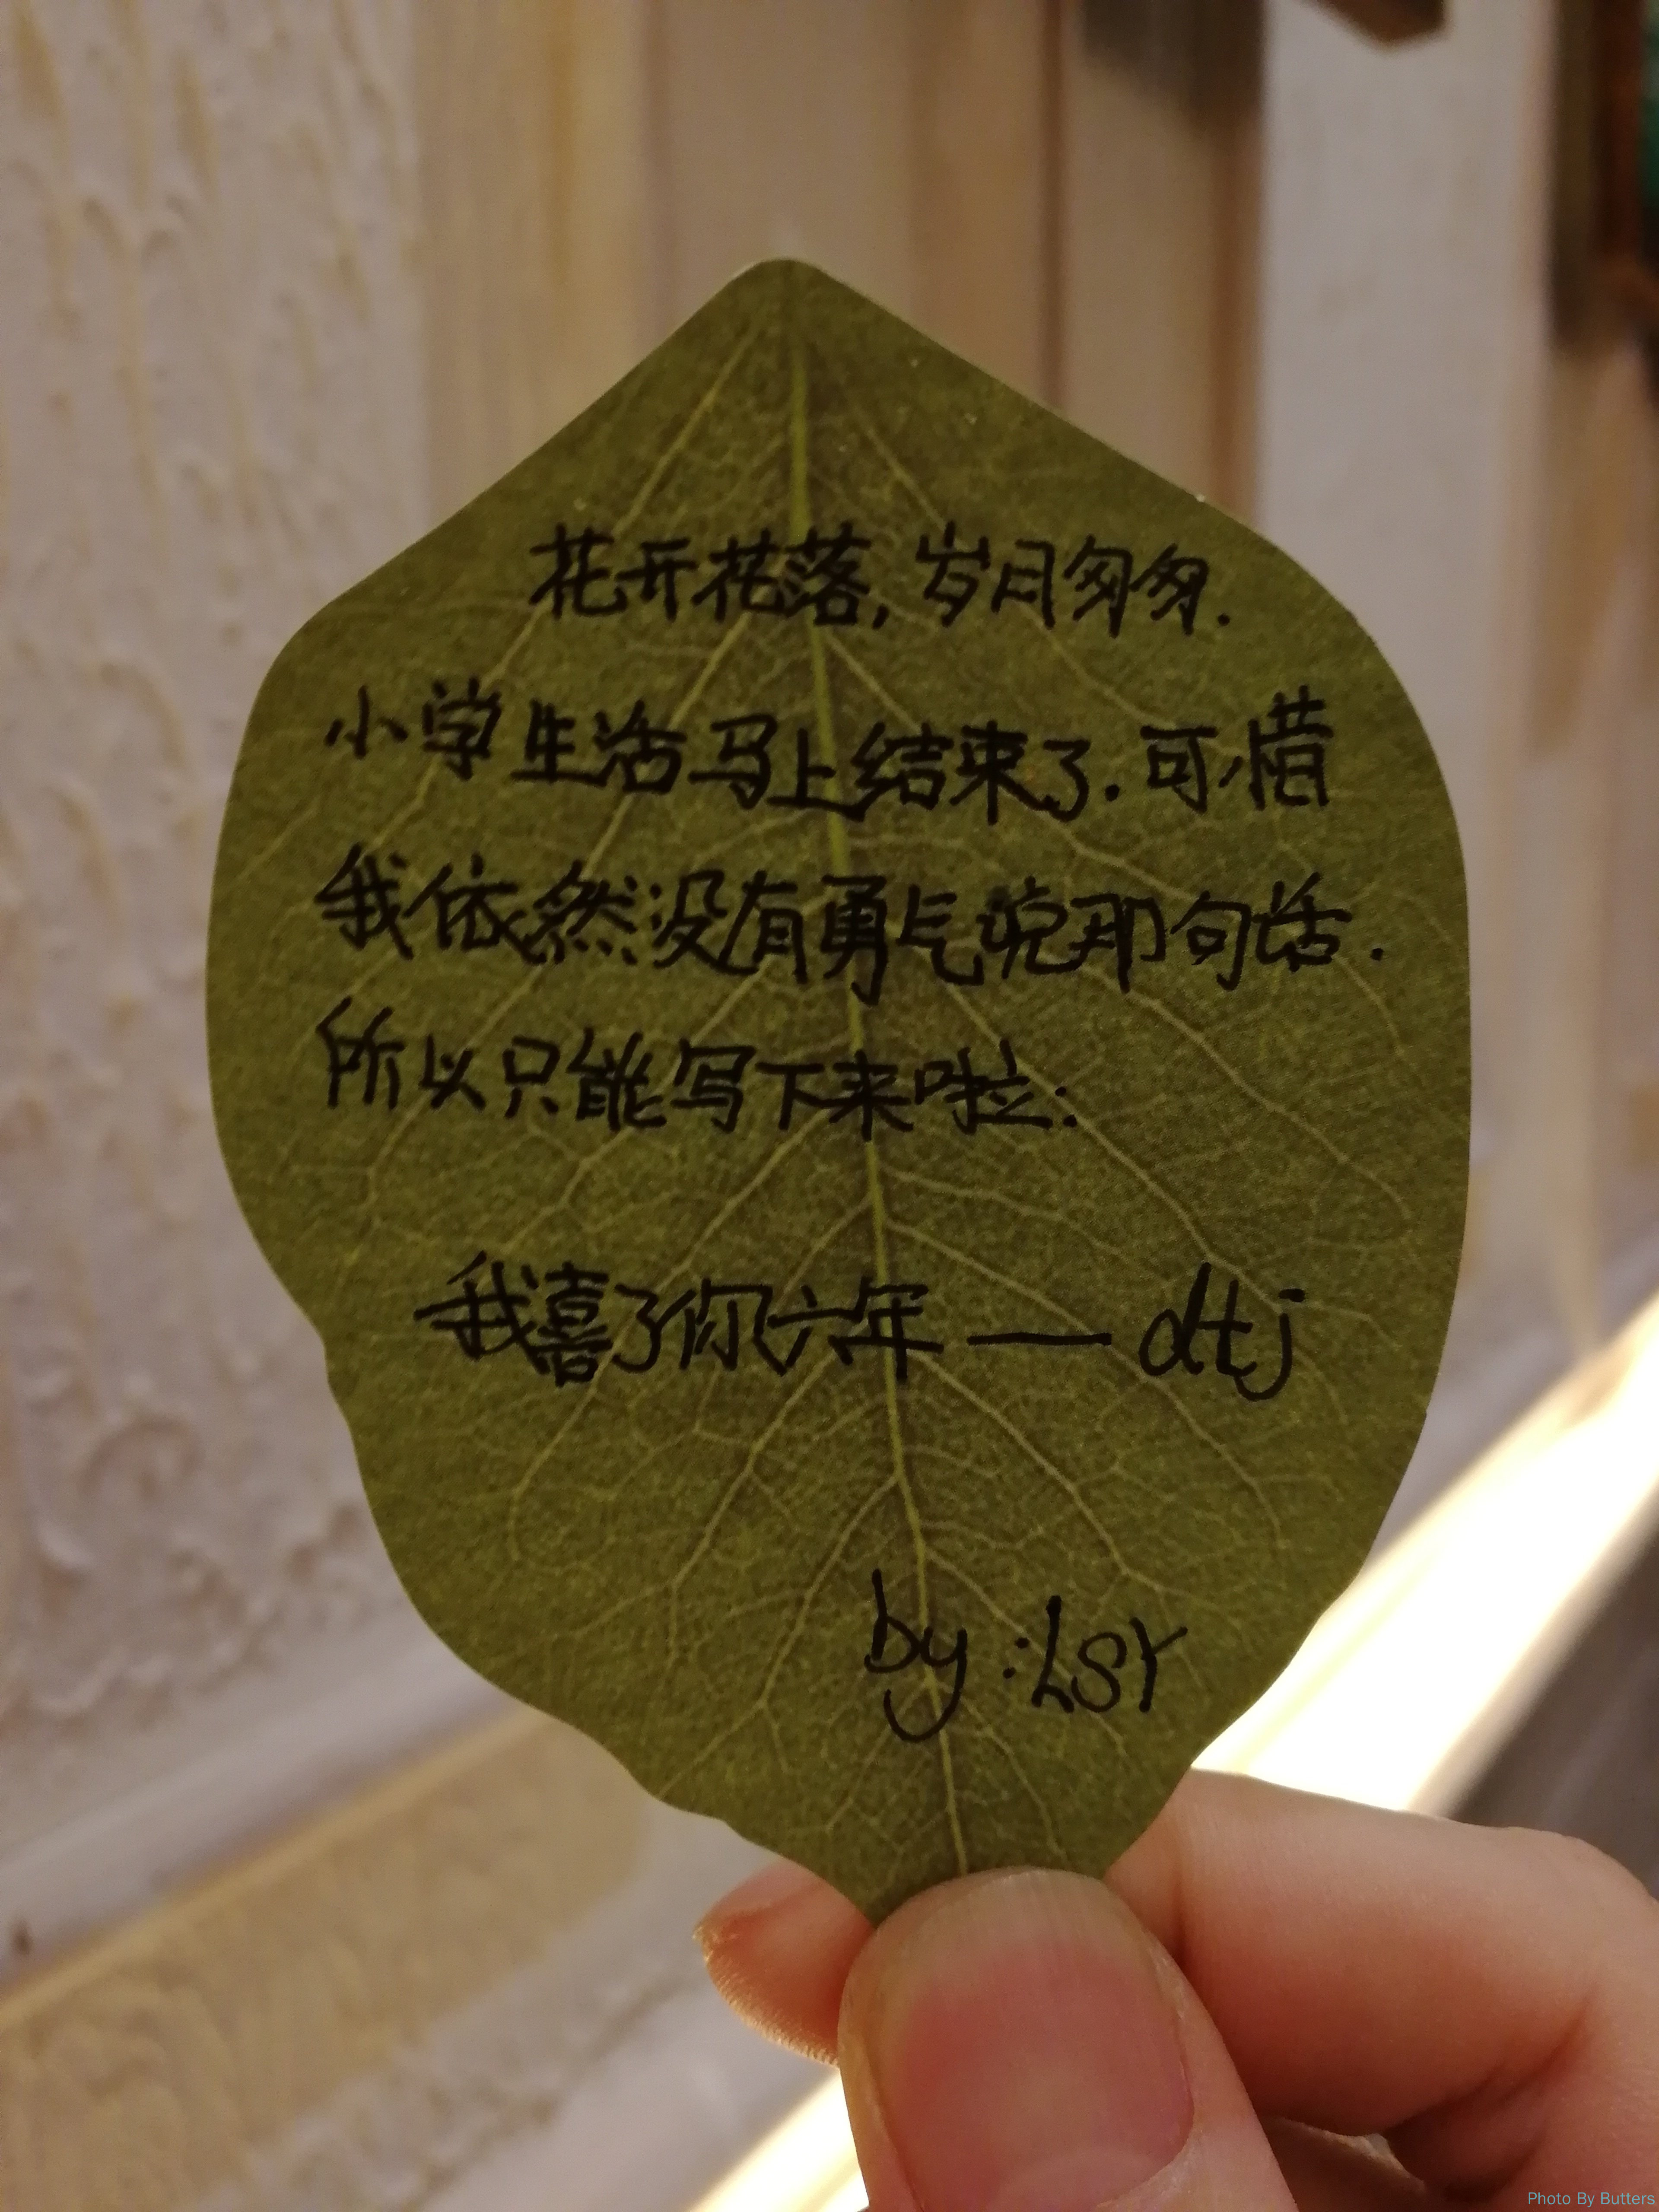 花开花落,岁月匆匆.
小学生活马上结束了.可惜
我依然没有勇气说那句话.
所以只能写下来啦:
我喜了你六年——dtj
by:LSY
Photo By Butters